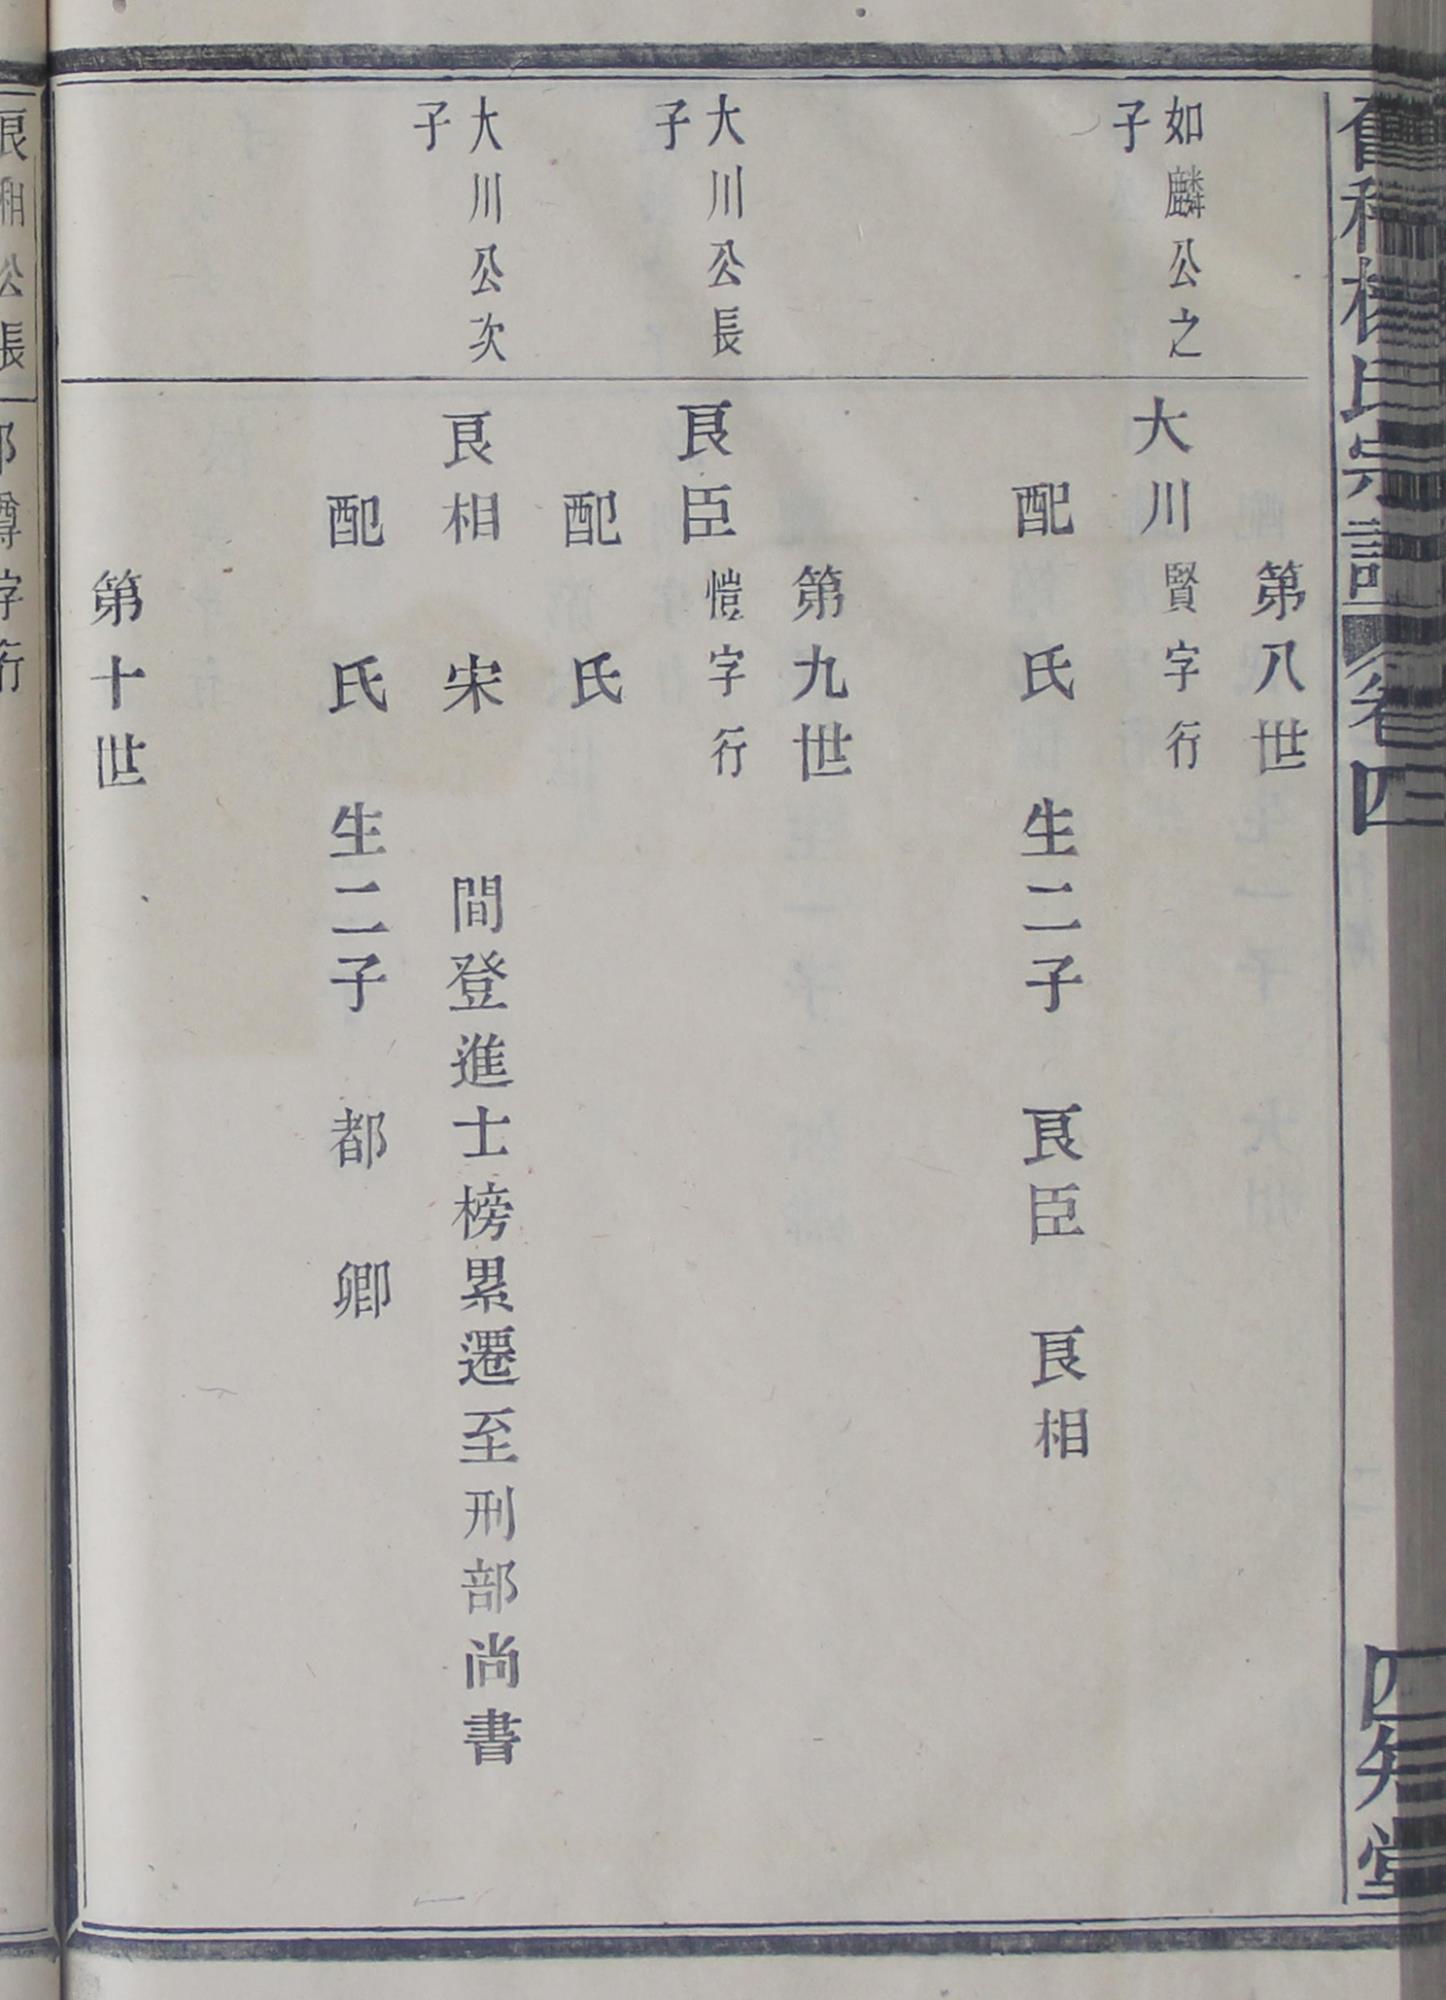 氏宗譜 卷四
四知堂
第八世
如麟公之
子
大川 賢字行
配 氏 生二子 良臣 良相
第九世
大川公長
子
良臣 愷字行
配 氏
大川公次
子
良相 宋 間登進士榜累遷至刑部尚書
配 氏 生二子 都 卿
第十世